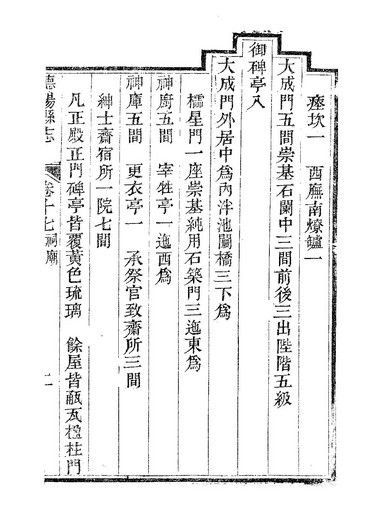 瘞坎一　西廡南燎鑪一
大成門五間崇基石闌中三間前後三出陛階五級
御碑亭八
大成門外居中為內泮池闌橋三下為
櫺星門一座崇基純用石築門三迤東為
神廚五間　宰牲亭一迤西為
神庫五間　更衣亭一　承祭官致齋所三間
紳士齋宿所一院七間
凡正殿正門碑亭皆覆黃色琉璃　餘屋皆瓦楹柱門
德陽縣志　卷十七祠廟